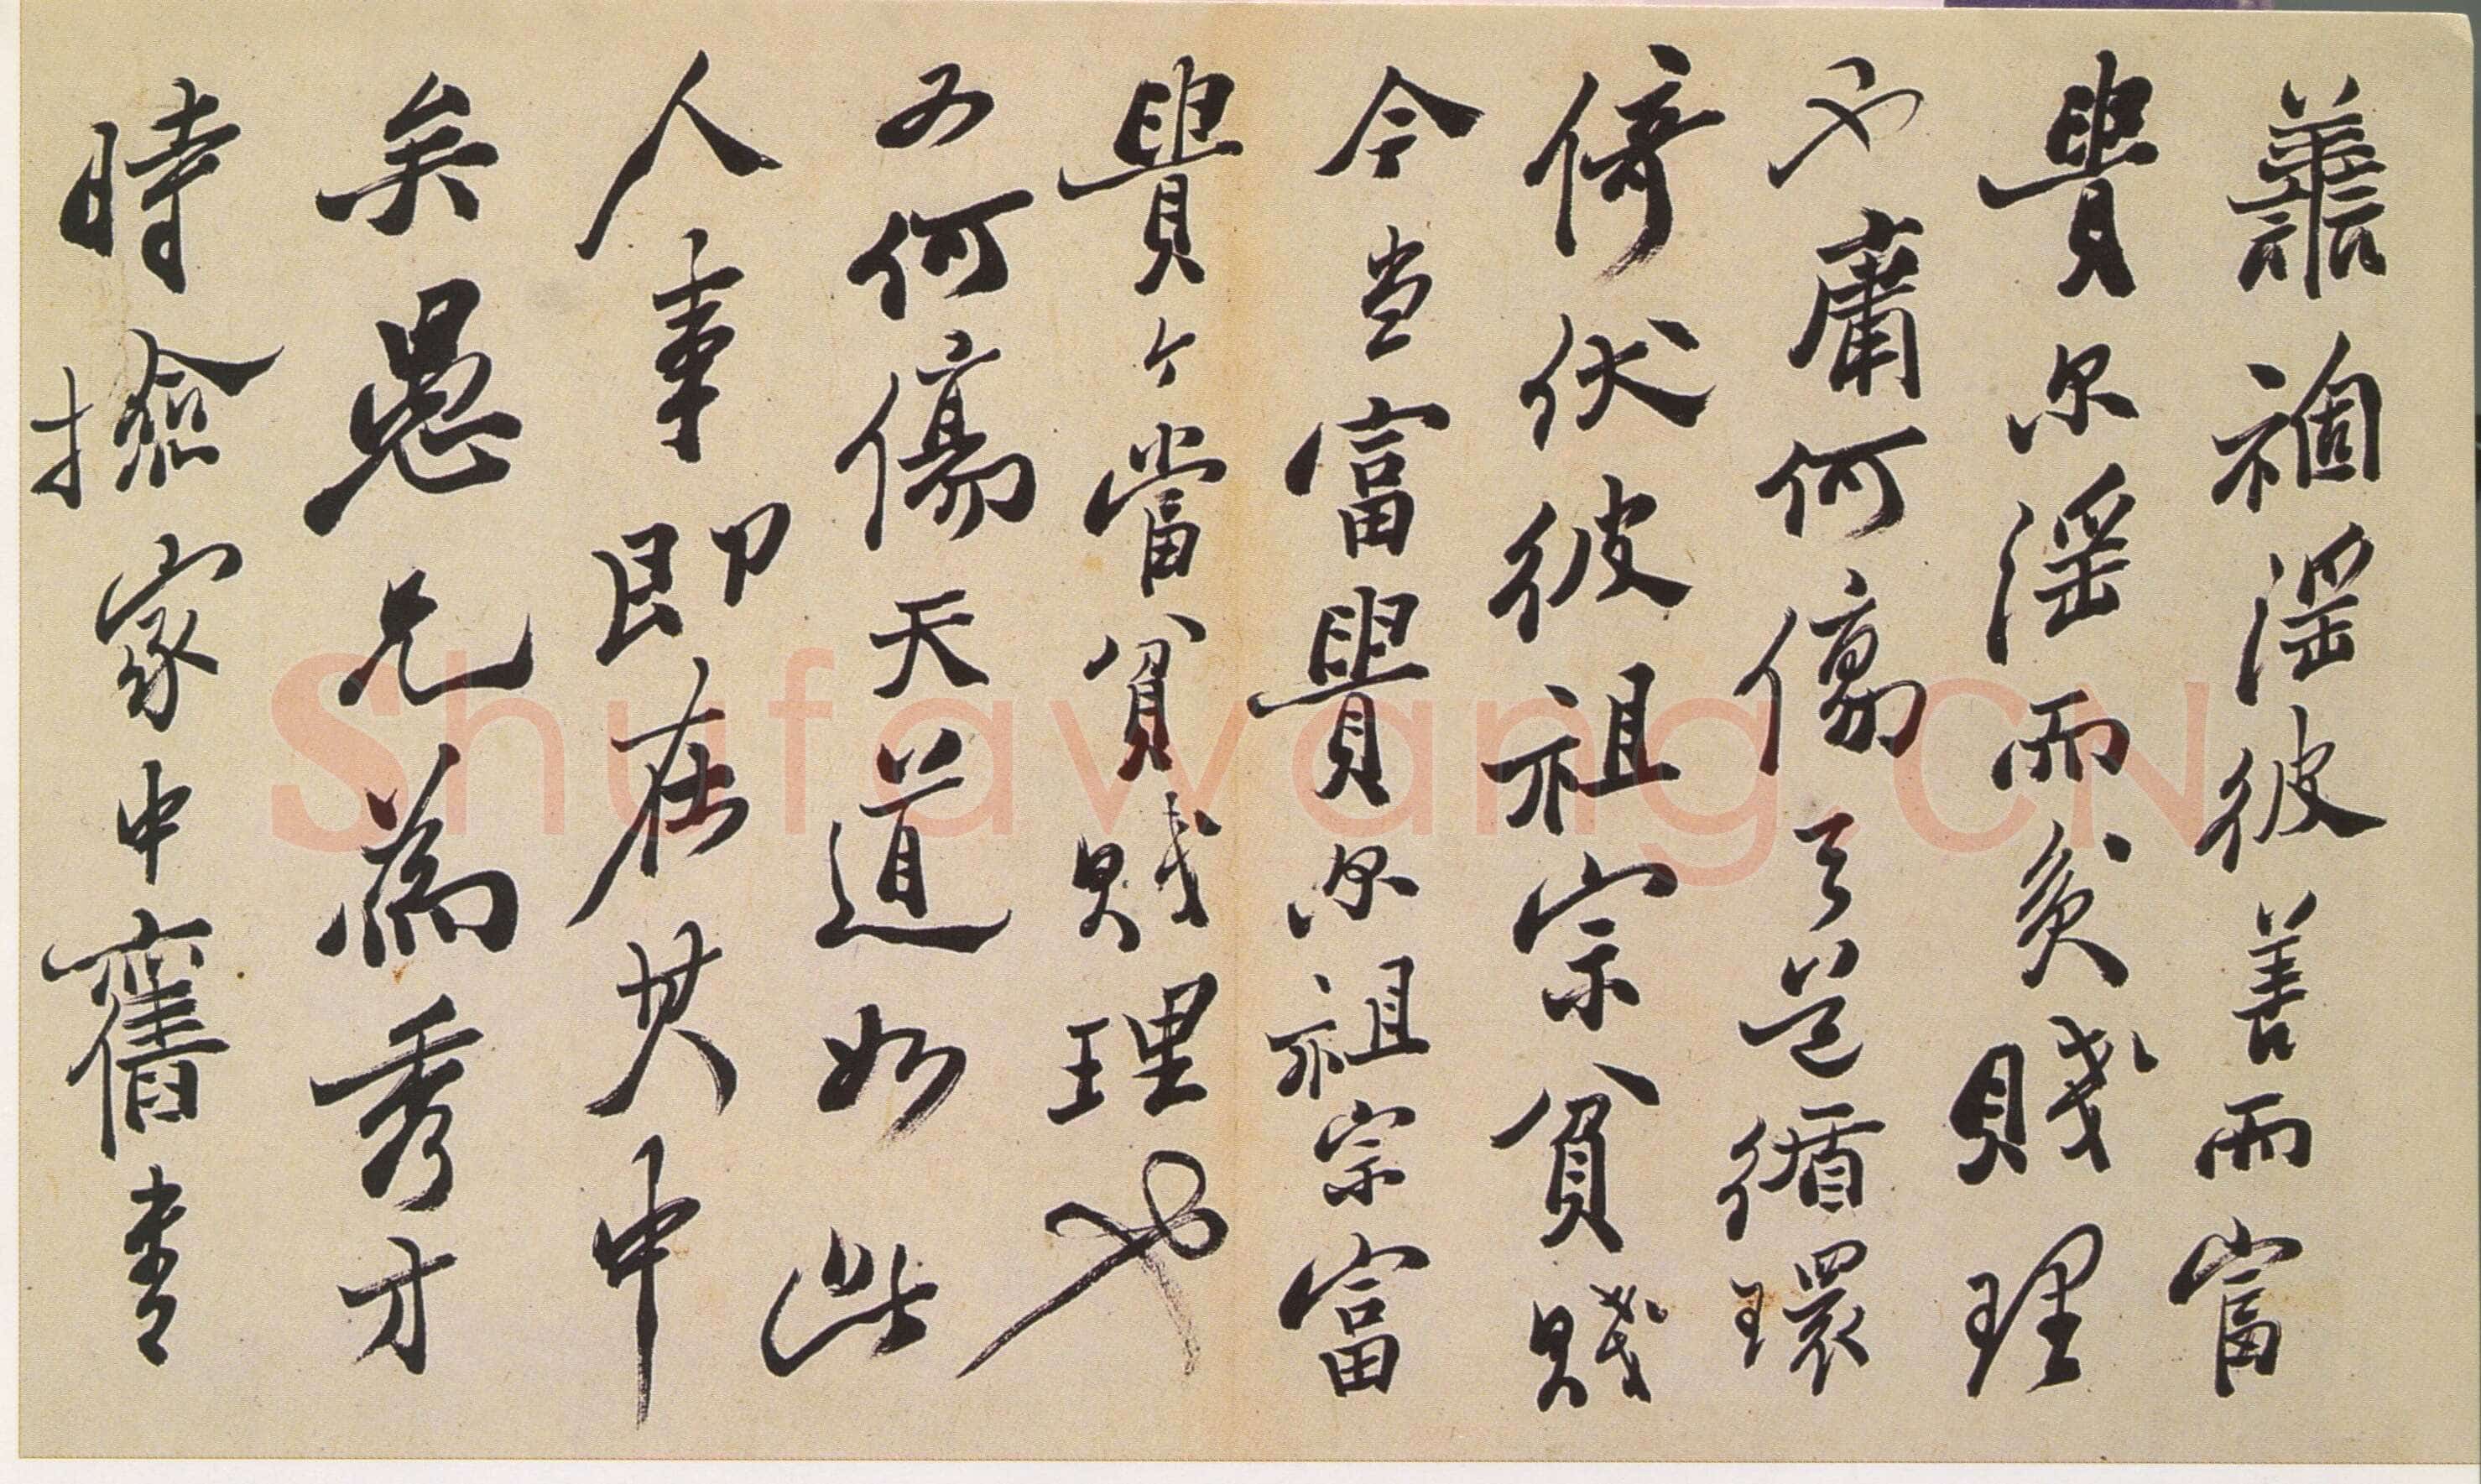 善禍淫彼善而富
貴尔淫而貧賤理
也庸何傷天道循環
倚伏彼祖宗貧賤
今當富貴尔祖宗富
貴今當貧賤理也
又何傷天道如此
人事即在其中
矣愚兄為秀才
時撿家中舊書
Shufawang.CN